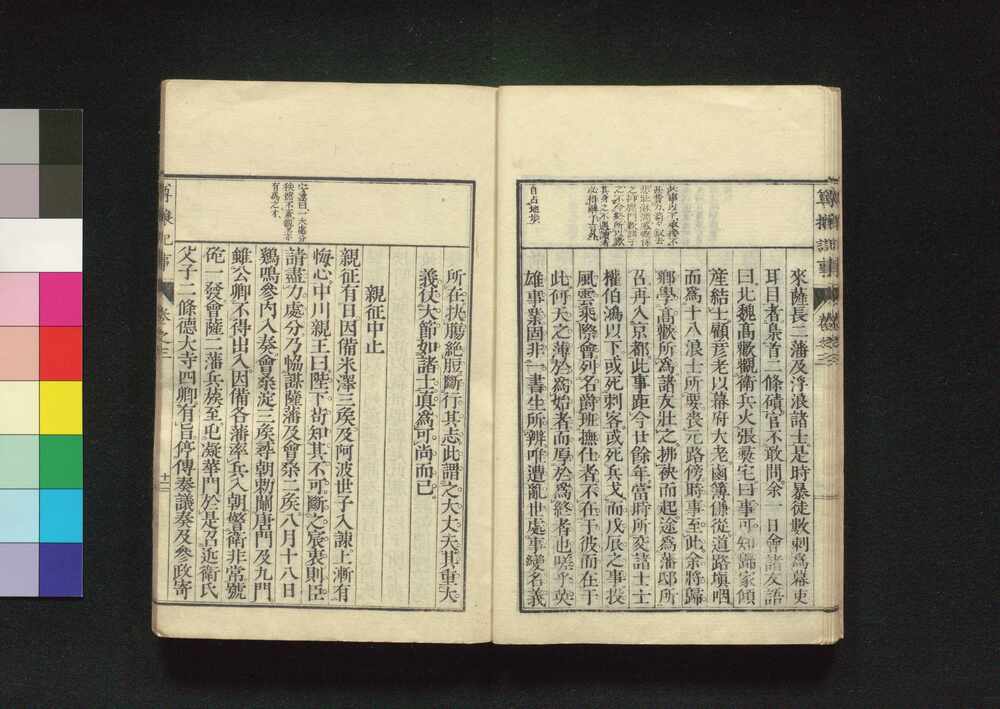 尊攘記事
卷之三
此事以下承接不
自占地步
來薩長二藩及浮浪諸士是時暴徒數刺爲幕吏
耳目者梟首二條磧官不敢問余一日會諸友語
曰北魏高歡觀衞兵火張彝宅曰事可知歸家傾
産結士顧彦老以幕府大老鹵簿傔從道路塡咽
而爲十八浪士所要喪元路傍時事至此余將歸
鄕學高歡所爲諸友壯之拂袂而起途爲藩邸所
召再入京都此事距今廿餘年當時所交諸士士
權伯鴻以下或死刺客或死兵戈而戊辰之事投
風雲乘際會列名爵班撫仕者不在于彼而在于
此何天之薄於爲始者而厚於爲終者也嗟乎英
雄事業固非一書生所辨唯遭亂世處事變名義
所在抉膓絶脰斷行其志此謂之大丈夫其重大
義仗大節如諸士眞爲可尚而已
親征中止
宕邊曰一大處分
有爲之才
親征有日因備米澤三矦及阿波世子入諫上漸有
悔心中川親王曰陛下苟知其不可斷之宸衷則臣
請盡力處分乃恊謀薩藩及會桑二矦八月十八日
鷄鳴參内入奏會桑淀三矦尋朝勅闢唐門及九門
雖公卿不得出入因備各藩率兵入朝警衞非常號
砲一發會薩二藩兵蔟至屯凝華門於是召近衞氏
父子二條德大寺四卿有旨停傳奏議奏及參政寄
尊攘紀事
卷之三
十二